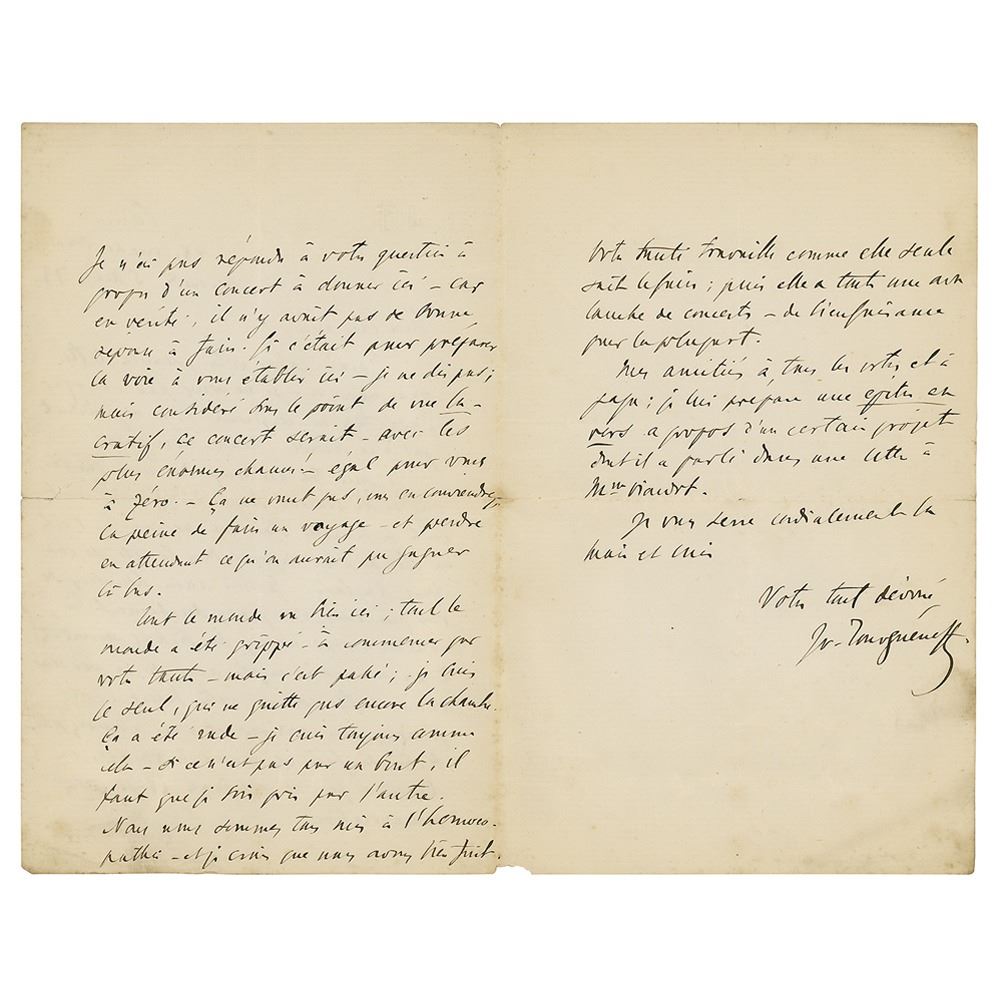 Je n'ai pas répondu à votre question à
propos d'un concert à donner ici – car
en vérité, il n'y avait pas de bonne
réponse à faire. Si c'était pour préparer
la voie à vous établir ici – je ne dis pas;
mais considéré sous le point de vue lu-
cratif, ce concert serait – avec les
plus énormes chances! – égal pour vous
à zéro. – Ça ne vaut pas, vous en conviendrez,
la peine de faire un voyage – et perdre
en attendant ce qu'on aurait pu gagner
là bas.
Tout le monde va bien ici; tout le
monde a été grippé – à commencer par
votre tante – mais c'est passé; je suis
le seul, qui ne quitte pas encore la chambre.
Ça a été rude – je suis toujours comme
cela – si ce n'est pas par un bout, il
faut que je sois pris par l'autre.
Nous nous sommes tous mis à l'homoeo-
pathie – et je crois que nous avons bien fait.
Votre tante travaille comme elle seule
sait le faire; puis elle a toute une ava
lanche de concerts – de bienfaisance
pour la plupart.
Mes amitiés à tous les vôtres et à
; je lui prépare une épître en
vers à propos d'un certain projet
dont il a parlé dans une lettre à
Mme Viardot.
Je vous serre cordialement la
main et suis
Votre tout dévoué
Iv. Tourguéneff.